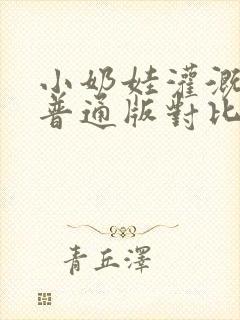 小奶娃灌溉
普通版對比
青丘澤